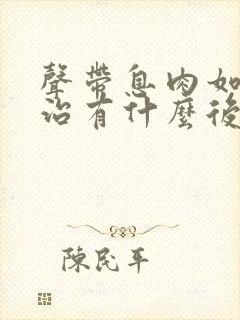 聲帶息肉如
治有什麼後
陳民平